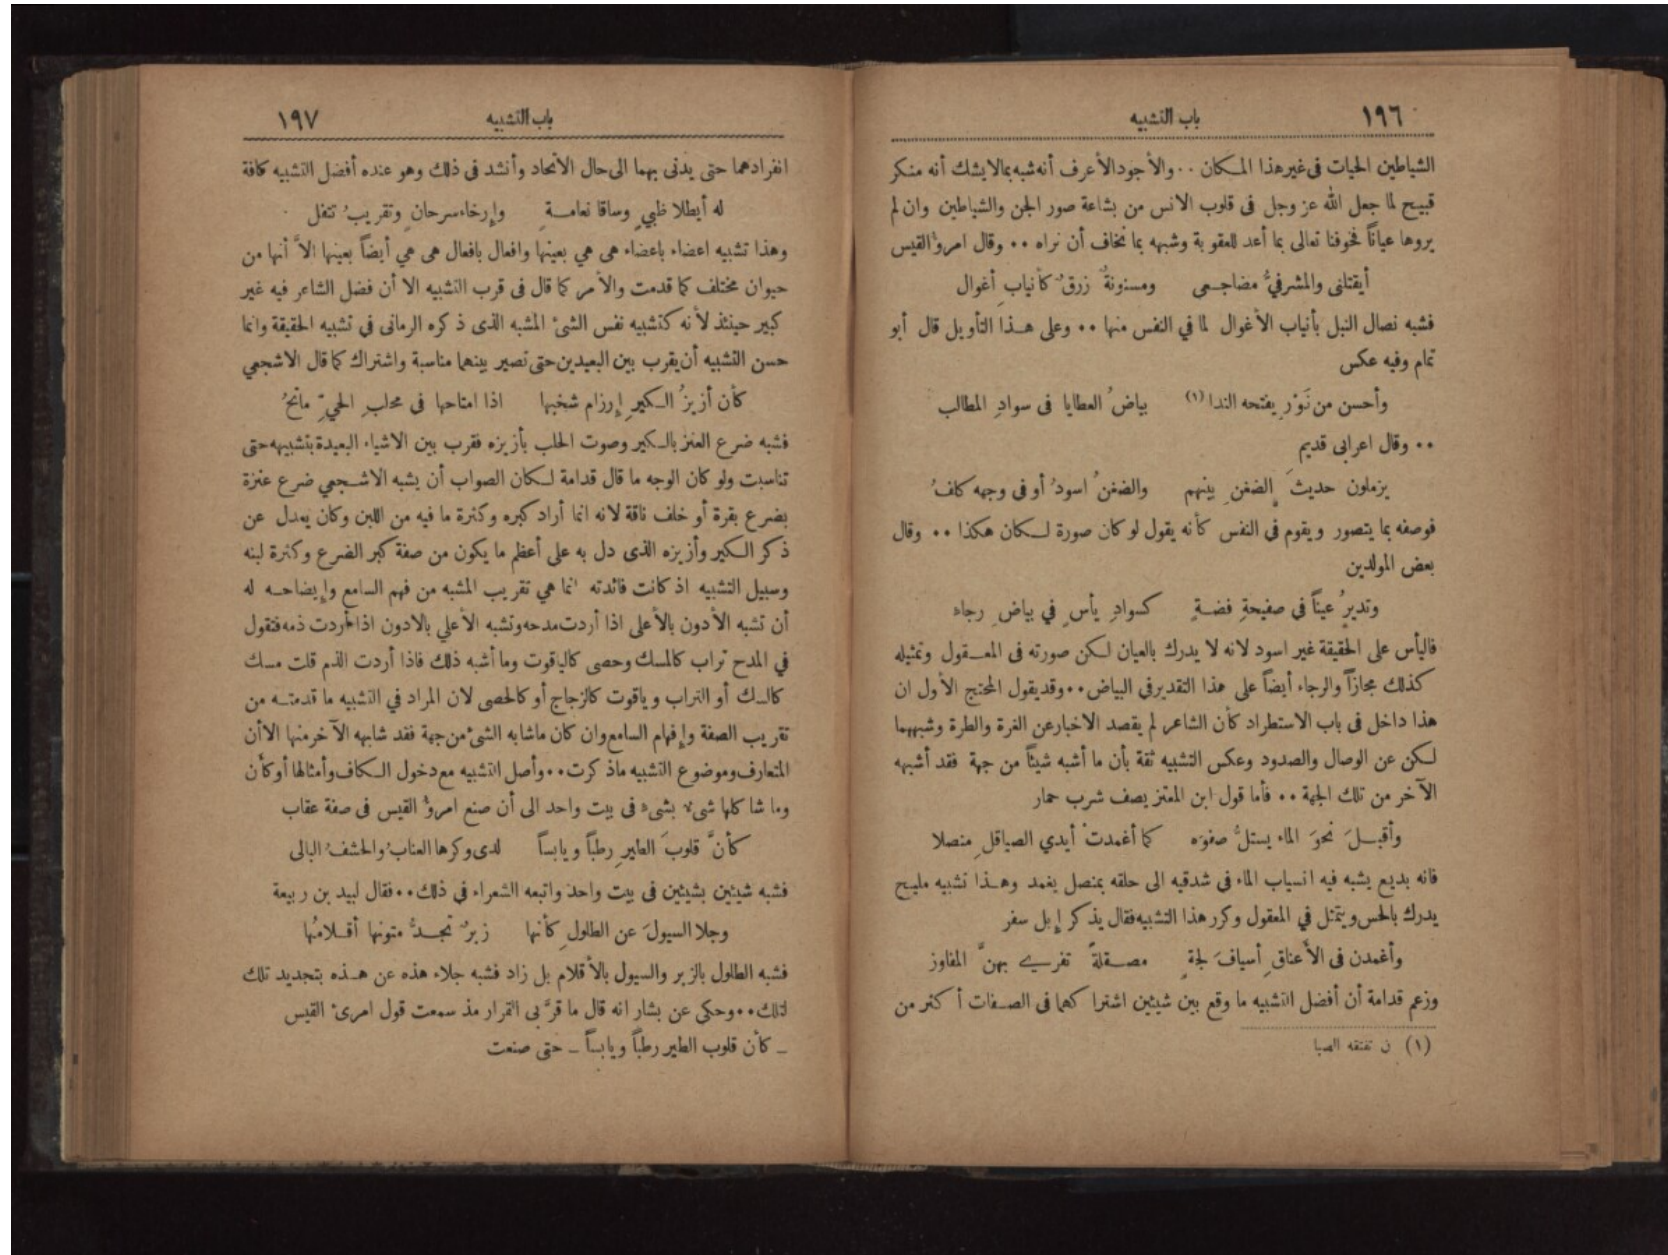 ١٩٦
باب التشبيه
الشياطين الحيات فى غير هذا المكان ٠٠ والأجود الأعرف أنه شبه بما لا يشك أنه منكر
قبيح لما جعل الله عز وجل فى قلوب الانس من بشاعة صور الجن والشياطين وان لم
يروها عياناً فخوفنا تعالى بما أعد للعقوبة وشبهه بما نخاف أن نراه ٠٠ وقال امرؤ القيس
أيقتلنى والمشرفيُّ مضاجعى ومسنونةٌ زرقٌ كأنيابِ أغوال
فشبه نصال النبل بأنياب الأغوال لما في النفس منها ٠٠ وعلى هذا التأويل قال أبو
تمام وفيه عكس
وأحسن من نَوْرٍ يفتحه الندا (١) بياضُ العطايا فى سوادِ المطالب
٠٠ وقال اعرابى قديم
يزملون حديثَ الضغنِ بينهم والضغنُ اسودُ أو فى وجهه كلفُ
فوصفه بما يتصور ويقوم فى النفس كأنه يقول لو كان صورة لكان هكذا ٠٠ وقال
بعض المولدين
وتديرُ عيناً فى صفيحةِ فضةٍ كسوادِ يأسٍ في بياضِ رجاء
فاليأس على الحقيقة غير اسود لانه لا يدرك بالعيان لكن صورته فى المعقول وتمثيله
كذلك مجازاً والرجاء أيضاً على هذا التقدير في البياض ٠٠ وقد يقول المحتج الأول ان
هذا داخل فى باب الاستطراد كأن الشاعر لم يقصد الاخبار عن الغرة والطرة وشبههما
لكن عن الوصال والصدود وعكس التشبيه ثقة بأن ما أشبه شيئاً من جهة فقد أشبهه
الآخر من تلك الجهة ٠٠ فأما قول ابن المعتز يصف شرب حمار
وأقبلَ نحوَ الماء يستلُّ صفوَه كما أغمدتْ أيدي الصياقلِ منصلا
فانه بديع يشبه فيه انسياب الماء فى شدقيه الى حلقه بمنصل يغمد وهذا تشبيه مليح
يدرك بالحس ويتمثل في المعقول وكرر هذا التشبيه فقال يذكر إبل سفر
وأغمدن فى الأعناقِ أسيافَ لجةٍ مصقلةً تفرى بهنَّ المفاوز
وزعم قدامة أن أفضل التشبيه ما وقع بين شيئين اشتراكهما فى الصفات أكثر من
(١) ن تفتقه الصبا
باب التشبيه
١٩٧
انفرادهما حتى يدنى بهما الى حال الاتحاد وأنشد فى ذلك وهو عنده أفضل التشبيه كافة
له أيطلا ظبيٍ وساقا نعامةٍ وإرخاء سرحانٍ وتقريبُ تتفل
وهذا تشبيه اعضاء باعضاء هى هي بعينها وافعال بافعال هى هي أيضاً بعينها الاَّ أنها من
حيوان مختلف كما قدمت والأمر كما قال فى قرب التشبيه الا أن فضل الشاعر فيه غير
كبير حينئذ لأنه كتشبيه نفس الشئ المشبه الذى ذكره الرمانى في تشبيه الحقيقة وانما
حسن التشبيه أن يقرب بين البعيدين حتى تصير بينهما مناسبة واشتراك كما قال الاشجعي
كأن أزيزُ الكيرِ إرزام شخبها اذا امتاحها فى محلبِ الحيِّ ماتحُ
فشبه ضرع العنز بالكير وصوت الحلب بأزيزه فقرب بين الاشياء البعيدة بتشبيهه حتى
تناسبت ولو كان الوجه ما قال قدامة لكان الصواب أن يشبه الاشجعي ضرع عنزة
بضرع بقرة أو خلف ناقة لانه انما أراد كبره وكثرة ما فيه من اللبن وكان يعدل عن
ذكر الكير وأزيزه الذى دل به على أعظم ما يكون من صفة كبر الضرع وكثرة لبنه
وسبيل التشبيه اذ كانت فائدته انما هي تقريب المشبه من فهم السامع وإيضاحه له
أن تشبه الأدون بالأعلى اذا أردت مدحه وتشبه الأعلي بالادون اذا أردت ذمه فتقول
في المدح تراب كالمسك وحصى كالياقوت وما أشبه ذلك فاذا أردت الذم قلت مسك
كالسك أو التراب وياقوت كالزجاج أو كالحصى لان المراد في التشبيه ما قدمته من
تقريب الصفة وإفهام السامع وان كان ماشابه الشئ من جهة فقد شابهه الآخر منها الا أن
المتعارف وموضوع التشبيه ماذكرت ٠٠ وأصل التشبيه مع دخول الكاف وأمثالها أو كأن
وما شاكلها شىء بشىء فى بيت واحد الى أن صنع امرؤ القيس فى صفة عقاب
كأنَّ قلوبَ الطيرِ رطباً ويابساً لدى وكرها العنابُ والحشفُ البالى
فشبه شيئين بشيئين فى بيت واحد واتبعه الشعراء في ذلك ٠٠ فقال لبيد بن ربيعة
وجلا السيولَ عن الطلولِ كأنها زبرٌ تجدُّ متونها أقلامُها
فشبه الطلول بالزبر والسيول بالأقلام بل زاد فشبه جلاء هذه عن هذه بتجديد تلك
لتلك ٠٠ وحكى عن بشار انه قال ما قرَّ بى القرار مذ سمعت قول امرئ القيس
ــ كأن قلوب الطير رطباً ويابساً ــ حتى صنعت